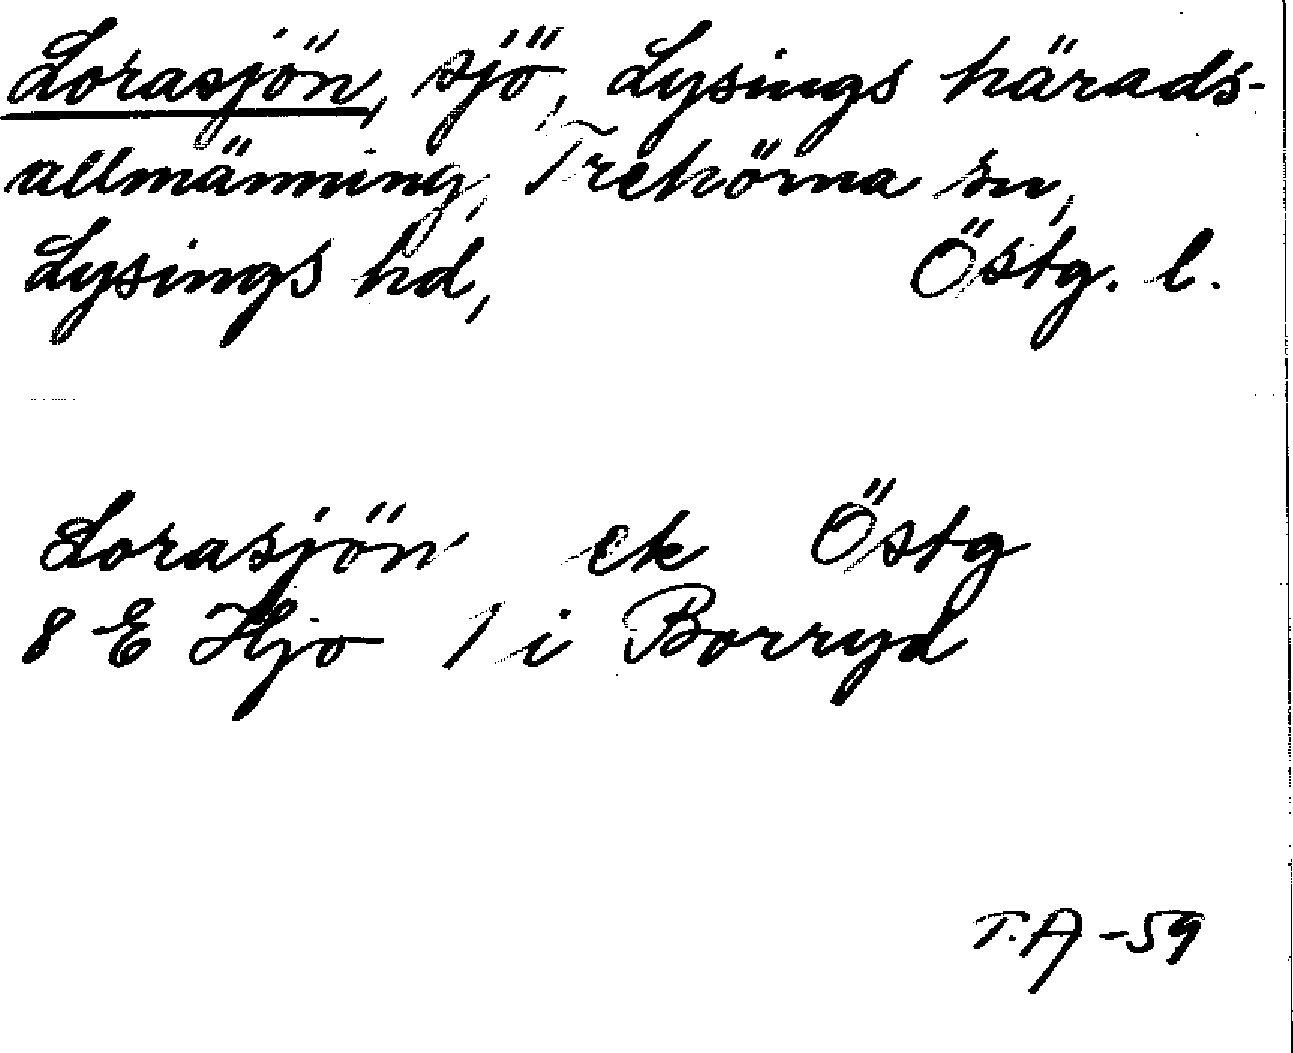 Lorasjön, sjö, Lysings härads-
allmänning, Trehörna sn,
Lysings hd, Östg. l.
Lorasjön ek Östg
8 E Hjo 1 i Borryd
T.A -59